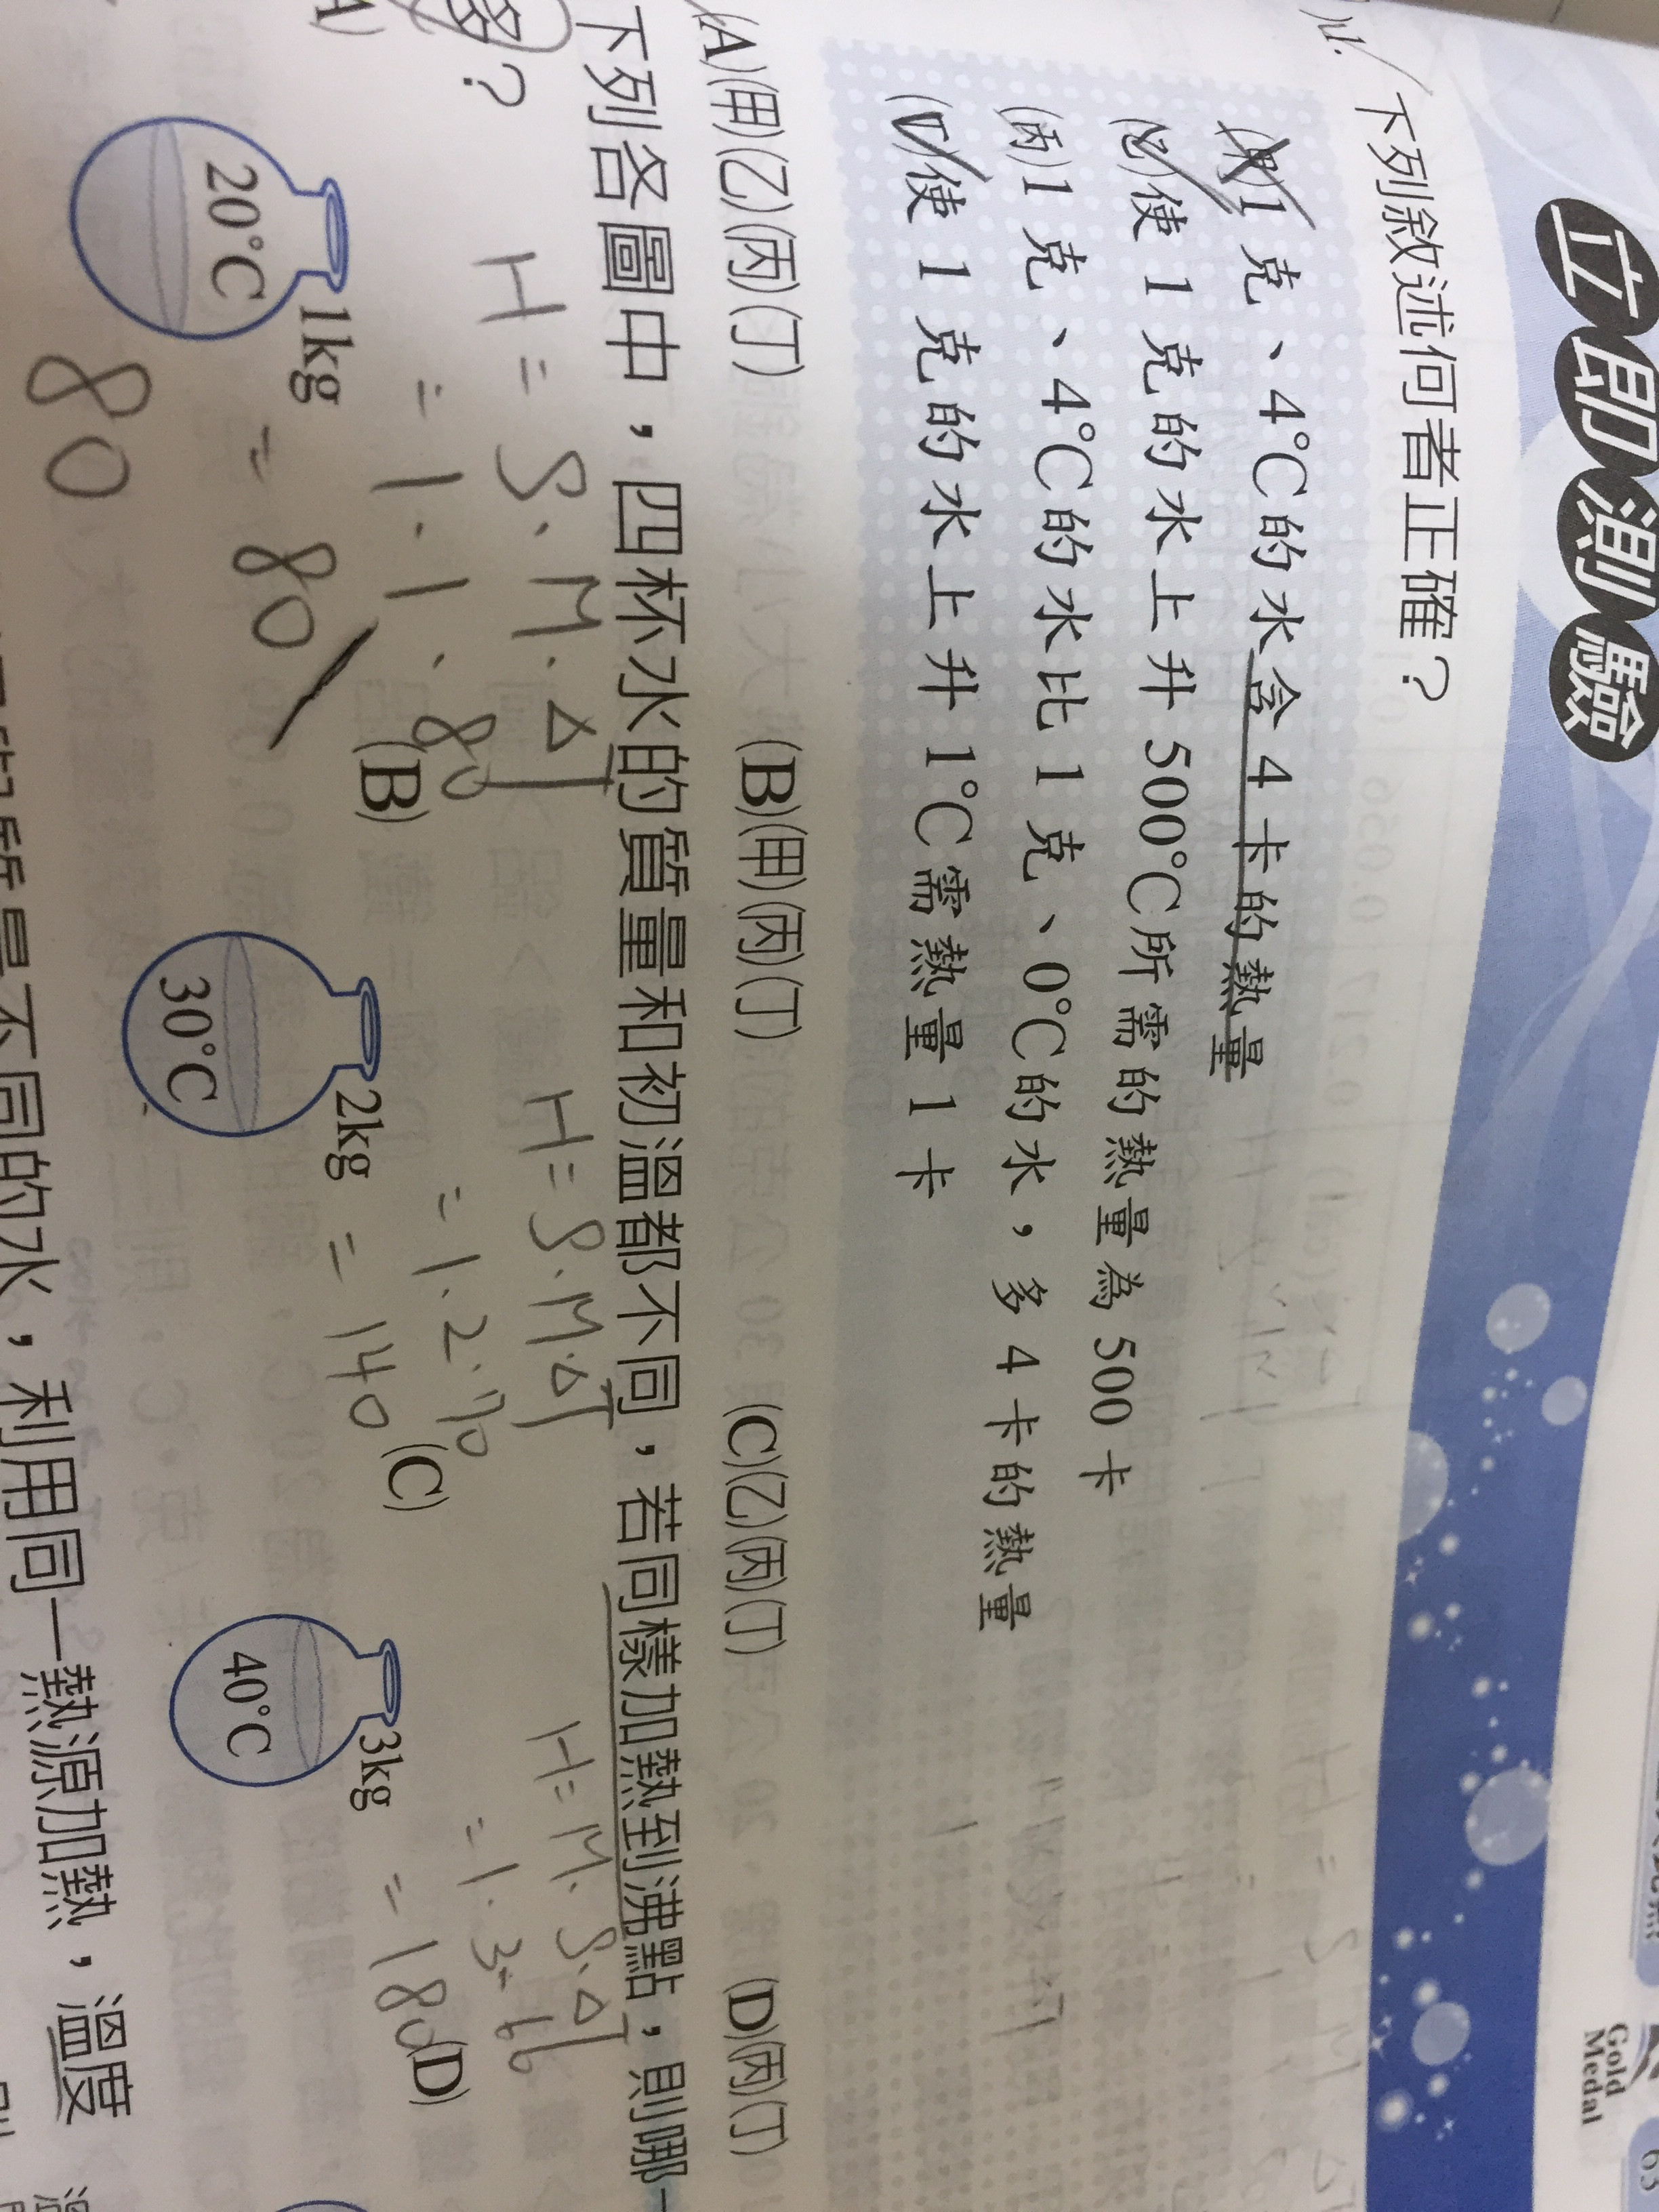 立即測驗
下列敘述何者正確？
(甲)1 克、4℃的水含 4 卡的熱量
(乙)使 1 克的水上升 500℃所需的熱量為 500 卡
(丙)1 克、4℃的水比 1 克、0℃的水，多 4 卡的熱量
(丁)使 1 克的水上升 1℃需熱量 1 卡
(A)(甲)(乙)(丙)(丁) (B)(甲)(丙)(丁) (C)(乙)(丙)(丁) (D)(丙)(丁)
下列各圖中，四杯水的質量和初溫都不同，若同樣加熱到沸點，則哪一
多？
H = S．M．△T
= 1．1．80
= 80
80
H = S．M．△T
= 1．2．70
= 140
H = M．S．△T
= 1．3．60
= 180
A)
20℃
1kg
(B)
30℃
2kg
(C)
40℃
3kg
(D)
質量不同的水，利用同一熱源加熱，溫度
Gold
Medal
63